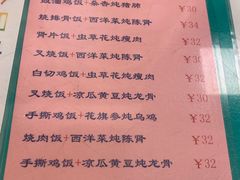 豉油鸡饭+桑杏炖猪肺 ¥30
烧排骨饭+西洋菜炖陈肾 ¥34
肾片饭+虫草花炖瘦肉 ¥30
叉烧饭+西洋菜炖陈肾 ¥32
白切鸡饭+虫草花炖瘦肉 ¥32
叉烧饭+凉瓜黄豆炖龙骨 ¥30
手撕鸡饭+花旗参炖乌鸡 ¥32
烧肉饭+西洋菜炖陈肾 ¥32
手撕鸡饭+凉瓜黄豆炖龙骨 ¥32